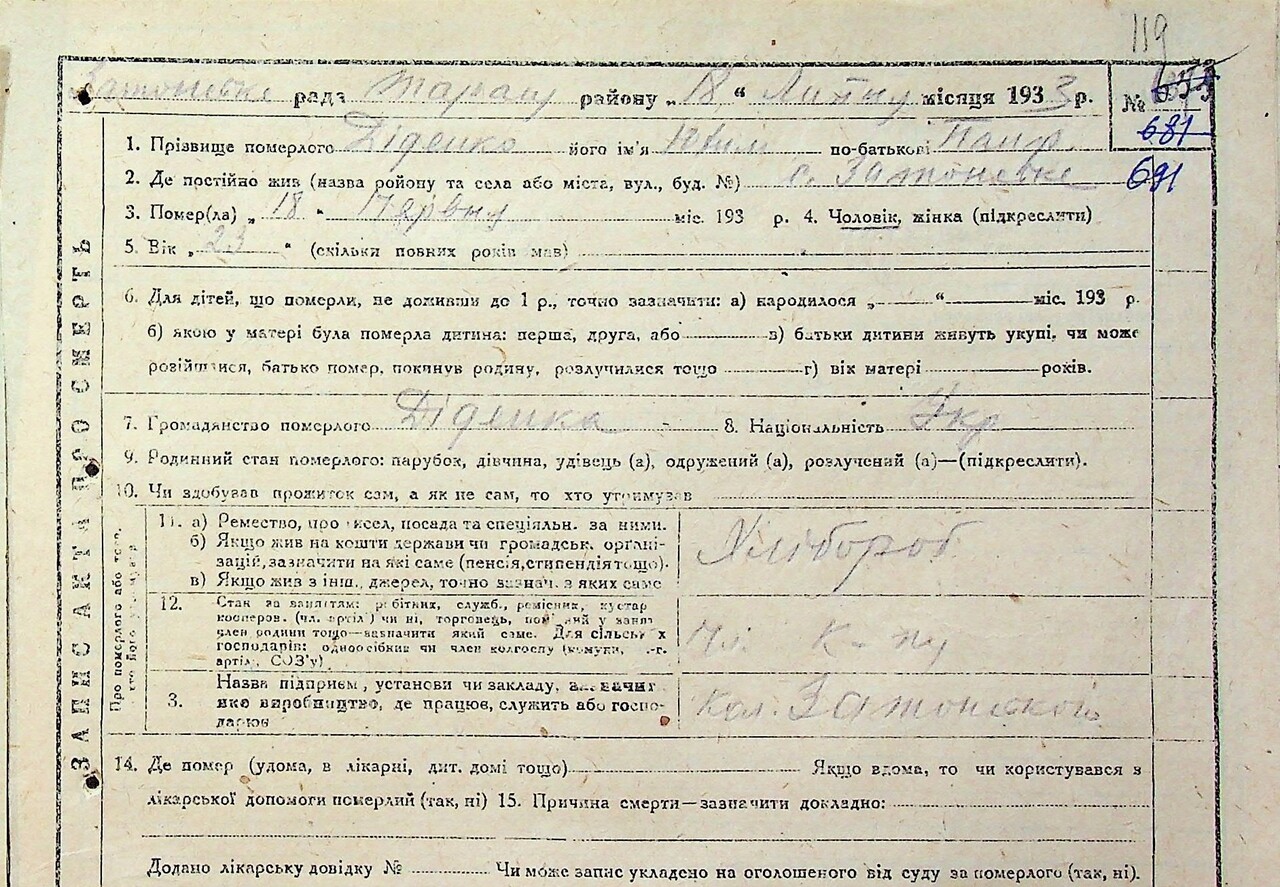 119
рада району „18“ Липну місяця 1933 р. №
681
1. Прізвище померлого Діденко його ім'я Юхим по-батькові Панр.
2. Де постійно жив (назва району та села або міста, вул., буд. №) с. Затоневке
691
3. Помер(ла) „18“ Червну міс. 193 р. 4. Чоловік, жінка (підкреслити)
5. Вік „23“ (скільки повних років мав)
6. Для дітей, що померли, не доживши до 1 р., точно зазначити: а) народилося „ “ міс. 193 р.
б) якою у матері була померла дитина: перша, друга, або в) батьки дитини живуть укупі, чи може
розійшлися, батько помер, покинув родину, розлучилися тощо г) вік матері років.
7. Громадянство померлого Діденка 8. Національність Укр
9. Родинний стан померлого: парубок, дівчина, удівець (а), одружений (а), розлучений (а)—(підкреслити).
10. Чи здобував прожиток сам, а як не сам, то хто утримував
11. а) Ремество, промисел, посада та спеціяльн. за ними.
б) Якщо жив на кошти держави чи громадськ. орґані-
зацій, зазначити на які саме (пенсія, стипендія тощо).
в) Якщо жив з інш. джерел, точно зазнач. з яких саме
Хлібороб
12. Стан за заняттям: робітник, служб., ремісник, кустар
кооперов. (чл. артілі) чи ні, торговець, пом у занят
член родини тощо—зазначити який саме. Для сільськ х
господарів: одноосібник чи член колгоспу (комуни, -г.
артілі, СОЗ'у)
Чл. к-пу
3. Назва підприєм., установи чи закладу, зазначит
яке виробництво, де працює, служить або госпо-
дарює
Кол. Затонского
14. Де помер (удома, в лікарні, дит. домі тощо) Якщо вдома, то чи користувався з
лікарської допомоги померлий (так, ні) 15. Причина смерти—зазначити докладно:
Додано лікарську довідку № Чи може запис укладено на оголошеного від суду за померлого (так, ні).
ЗАПИС АКТА ПРО СМЕРТЬ
Про померлого або того,
хто його утримував